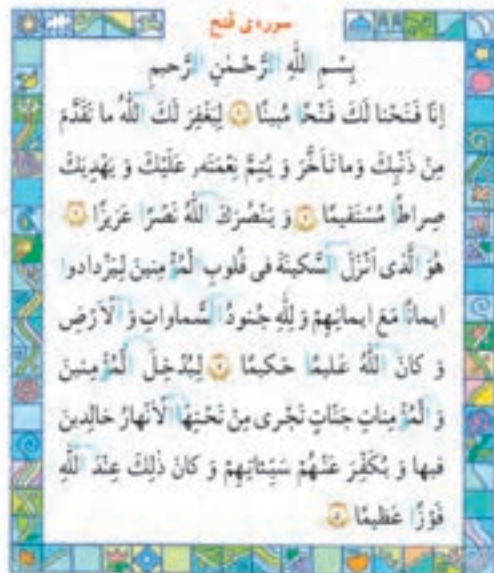 سوره‌ی فتح
بِسْمِ اللّٰهِ الرَّحْمٰنِ الرَّحیمِ
اِنّا فَتَحْنا لَكَ فَتْحًا مُبینًا ۱ لِیَغْفِرَ لَكَ اللّٰهُ ما تَقَدَّمَ
مِنْ ذَنْۢبِكَ وَ ما تَاَخَّرَ وَ یُتِمَّ نِعْمَتَهٗ عَلَیْكَ وَ یَهْدِیَكَ
صِراطًا مُسْتَقیمًا ۲ وَ یَنْصُرَكَ اللّٰهُ نَصْرًا عَزیزًا ۳
هُوَ الَّذی اَنْزَلَ السَّكینَةَ فی قُلوبِ الْمُؤْمِنینَ لِیَزْدادوا
ایمانًا مَعَ ایمانِهِمْ وَ لِلّٰهِ جُنودُ السَّماواتِ وَ الْاَرْضِ
وَ كانَ اللّٰهُ عَلیمًا حَكیمًا ۴ لِیُدْخِلَ الْمُؤْمِنینَ
وَ الْمُؤْمِناتِ جَنّاتٍ تَجْری مِنْ تَحْتِهَا الْاَنْهارُ خالِدینَ
فیها وَ یُكَفِّرَ عَنْهُمْ سَیِّئاتِهِمْ وَ كانَ ذٰلِكَ عِنْدَ اللّٰهِ
فَوْزًا عَظیمًا ۵